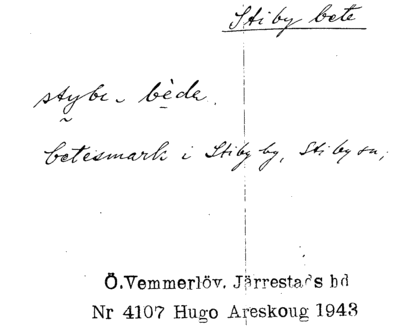 Stiby bete
stybe - bèda.
betesmark i Stiby by, Stiby sn;
Ö.Vemmerlöv. Järrestads hd
Nr 4107 Hugo Areskoug 1943